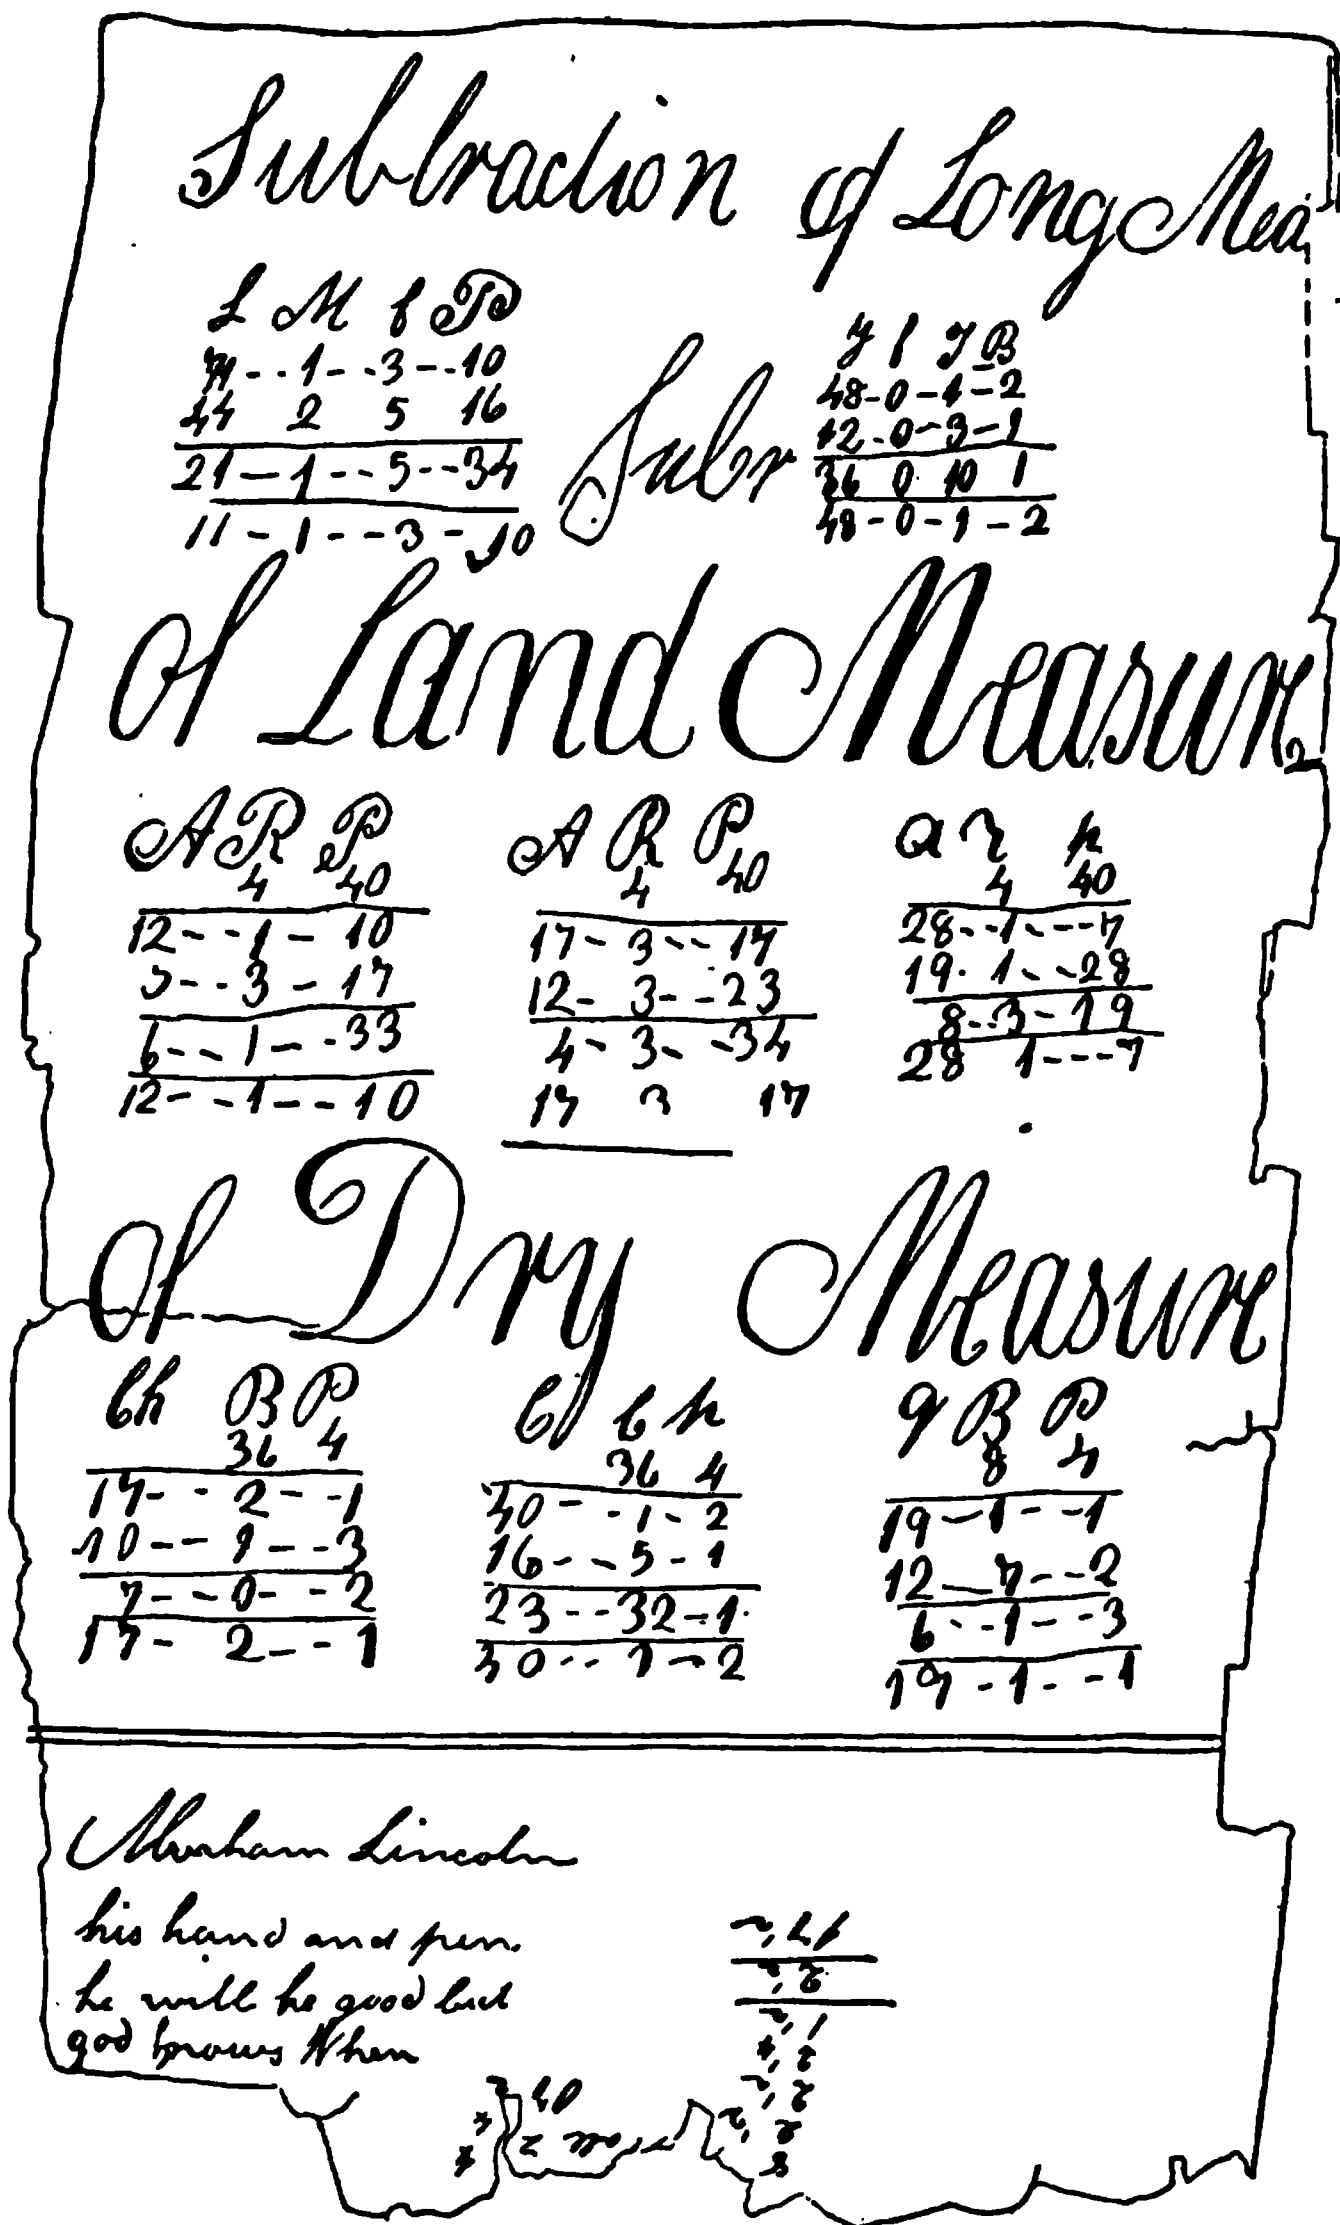 Subtraction of Long Mea
L M f P
1--3--10
44 2 5 16
21--1--5--34
11-1--3-10
Subr
y f I B
48-0-1-2
12-0-3-1
36 0 10 1
48-0-1-2
of Land Measure
A R P
4 40
12--1-10
5--3-17
6--1--33
12--1--10
A R P
4 40
17-3--17
12-3--23
4-3--34
17 3 17
a r p
4 40
28--1---7
19. 1--28
8--3-19
28 1---7
of Dry Measure
Ch B P
36 4
17--2--1
10--1--3
7--0--2
17-2--1
C b p
36 4
40--1-2
16--5-1
23--32-1
40--1-2
q B P
8 4
19-1--1
12-7--2
6--1--3
19-1--1
Abraham Lincoln
his hand and pen.
he will be good but
god knows When